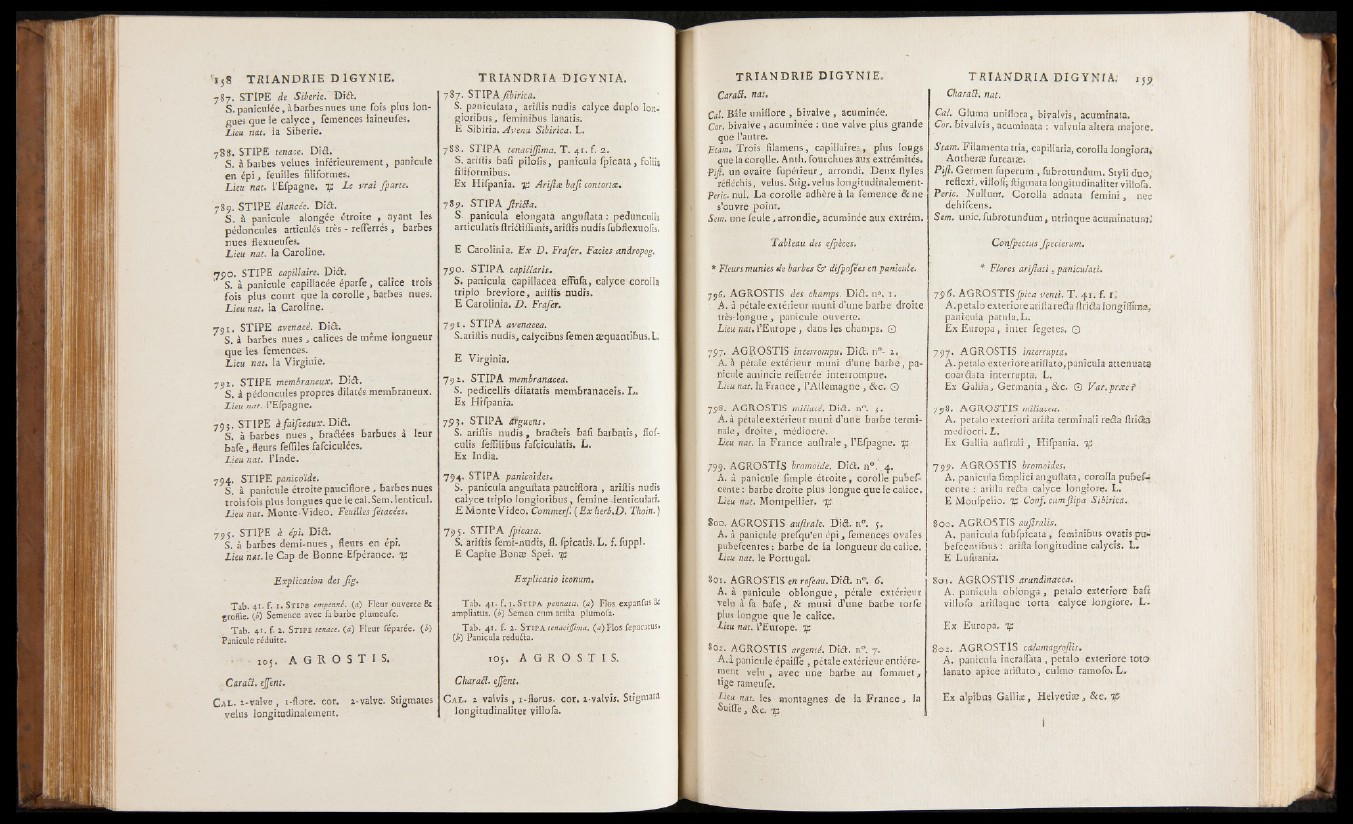 158 TRIANDRIE DIGYNIE.
787. STIPE de Siberie. Dict.
S. paniculée, à barbes nues une fois plus lon-
gues que le calyce, ſemences laineuſes.
Lieu nat. la Siberie.
788. STIPE tenace. Dict.
S. à barbes velues inférieurement, panicule
en épi, feuilles filiformes.
Lieu nat. l'Eſpagne. ♃ Le vrai ſparte.
789. STIPE élancée. Dict.
S. à panicule alongée étroite, ayant les
pédoncules articulés très-reſſerrés, barbes
nues flexueuſes.
Lieu nat. la Caroline.
790. STIPE capillaire. Dict.
S. à panicule capillacée éparſe, calice trois
fois plus court que la corolle, barbes nues.
Lieu nat. la Caroline.
791. STIPE avenacé. Dict.
S. à barbes nues, calices de même longueur
que les ſemences.
Lieu nat. la Virginie.
792. STIPE membraneux. Dict.
S. à pédoncules propres dilatés membraneux.
Lieu nat. l'Eſpagne.
793. STIPE à faiſceaux. Dict.
S. à barbes nues, bractées barbues à leur
baſe, fleurs ſeſſiles faſciculées.
Lieu nat. l'Inde.
794. STIPE panicoïde.
S. à panicule étroite pauciflore, barbes nues
trois fois plus longues que le cal. Sem. lenticul.
Lieu nat. Monte-Video. Feuilles ſétacées.
795. STIPE à épi. Dict.
S. à barbes demi-nues, fleurs en épi.
Lieu nat. le Cap de Bonne-Eſpérance. ♃
Explication des fig.
Tab. 41. f. 1. STIPE empenné. (a) Fleur ouverte &
groſſie. (b) Semence avec ſa barbe plumeuſe.
Tab. 41. f. 2. STIPE tenace. (a) Fleur ſéparée. (b)
Panicule réduite.
105. AGROSTIS.
Caract. eſſent.
CAL. 2-valve, 1-flore. cor. 2-valve. Stigmates
velus longitudinalement.
TRIANDRIA DIGYNIA.
787. STIPA ſibirica.
S. paniculata, ariſtis nudis calyce duplo lon-
gioribus, ſeminibus lanatis.
E Sibiria. Avena Sibirica. L.
788. STIPA tenaciſſima. T. 41. f. 2.
S. ariſtis baſi piloſis, panicula ſpicata, foliis
filiformibus.
Ex Hiſpania. ♃ Ariſtæ baſi contortæ.
789. STIPA ſtricta.
S. panicula elongata anguſtata: pedunculis
articulatis ſtrictiſſimis, ariſtis nudis ſubflexuoſis.
E Carolinia. Ex D. Fraſer. Facies andropog.
790. STIPA capillaris.
S. panicula capillacea effuſa, calyce corolla
triplo breviore, ariſtis nudis.
E Carolinia. D. Fraſer.
791. STIPA avenacea.
S. ariſtis nudis, calycibus ſemen æquantibus. L.
E Virginia.
792. STIPA membranacea.
S. pedicellis dilatatis membranaceis. L.
Ex Hiſpania.
793. STIPA arguens.
S. ariſtis nudis, bracteis baſi barbatis, floſ-
culis ſeſſilibus faſciculatis. L.
Ex India.
794. STIPA panicoides.
S. panicula anguſtata pauciflora, ariſtis nudis
calyce triplo longioribus, ſemine lenticulari.
E Monte Video. Commerſ. (Ex herb. D. Thoin.)
795. STIPA ſpicata.
S. ariſtis ſemi-nudis, fl. ſpicatis. L. f. ſuppl.
E Capite Bonæ Spei. ♃
Explicatio iconum.
Tab. 41. f. 1. STIPA pennata. (a) Flos expanſus &
ampliatus. (b) Semen cum ariſta plumoſa.
Tab. 41. f. 2. STIPA tenaciſſima. (a) Flos ſeparatus.
(b) Panicula reducta.
105. AGROSTIS.
Charact. eſſent.
CAL. 2 valvis, 1-florus. cor. 2-valvis. Stigmata
longitudinaliter villoſa.
TRIANDRIE DIGYNIE.
Caract. nat.
Cal. Bâle uniflore, bivalve, acuminée.
Cor. bivalve, acuminée: une valve plus grande
que l'autre.
Etam. Trois filamens, capillaires, plus longs
que la corolle. Anth. fourchues aux extrémités.
Piſt. un ovaire ſupérieur, arrondi. Deux ſtyles
réfléchis, velus. Stig. velus longitudinalement.
Peric. nul. La corolle adhère à la ſemence & ne
s'ouvre point.
Sem. une ſeule, arrondie, acuminée aux extrém.
Tableau des eſpèces.
* Fleurs munies de barbes & diſpoſées en panicule.
796. AGROSTIS des champs. Dict. n°. 1.
A. à pétale extérieur muni d'une barbe droite
très-longue, panicule ouverte.
Lieu nat. l'Europe, dans les champs. ☉
797. AGROSTIS interrompu. Dict. n°. 2.
A. à pétale extérieur muni d'une barbe, pa-
nicule amincie reſſerrée interrompue.
Lieu nat. la France, l'Allemagne, &c. ☉
798. AGROSTIS miliacé. Dict. n°. 3.
A. à pétale extérieur muni d'une barbe termi-
nale, droite, médiocre.
Lieu nat. la France auſtrale, l'Eſpagne. ♃
799. AGROSTIS bromoïde. Dict. n°. 4.
A. à panicule ſimple étroite, corolle pubeſ-
cente: barbe droite plus longue que le calice.
Lieu nat. Montpellier. ♃
800. AGROSTIS auſtrale. Dict. n°. 5.
A. à panicule preſqu'en épi, ſemences ovales
pubeſcentes: barbe de la longueur du calice.
Lieu nat. le Portugal.
801. AGROSTIS en roſeau. Dict. n°. 6.
A. à panicule oblongue, pétale extérieur
velu à ſa baſe, & muni d'une barbe torſe
plus longue que le calice.
Lieu nat. l'Europe. ♃
802. AGROSTIS argenté. Dict. n°. 7.
A. à panicule épaiſſe, pétale extérieur entière-
ment velu, avec une barbe au ſommet,
tige rameuſe.
Lieu nat. les montagnes de la France, la
Suiſſe, &c. ♃
TRIANDRIA DIGYNIA. 159
Charact. nat.
Cal. Gluma uniflora, bivalvis, acuminata.
Cor. bivalvis, acuminata: valvula altera majore.
Stam. Filamenta tria, capillaria, corolla longiora.
Antheræ furcatæ.
Piſt. Germen ſuperum, ſubrotundum. Styli duo,
reflexi, villoſi; ſtigmata longitudinaliter villoſa.
Peric. Nullum. Corolla adnata ſemini, nec
dehiſcens.
Sem. unic. ſubrotundum, utrinque acuminatum.
Conſpectus ſpecierum.
* Flores ariſtati, paniculati.
796. AGROSTIS ſpica venti. T. 41. f. 1.
A. petalo exteriore ariſta recta ſtricta longiſſima,
panicula patula. L.
Ex Europa, inter ſegetes. ☉
797. AGROSTIS interrupta.
A. petalo exteriore ariſtato, panicula attenuata
coarctata interrupta. L.
Ex Gallia, Germania, &c. ☉ Var. præc?
798. AGROSTIS miliacea.
A. petalo exteriori ariſta terminali recta ſtricta
mediocri. L.
Ex Gallia auſtrali, Hiſpania. ♃
799. AGROSTIS bromoides.
A. panicula ſimplici anguſtata, corolla pubeſ-
cente: ariſta recta calyce longiore. L.
E Monſpelio. ♃ Conf. cum ſtipa Sibirica.
800. AGROSTIS auſtralis.
A. panicula ſubſpicata, ſeminibus ovatis pu-
beſcentibus: ariſta longitudine calycis. L.
E Luſitania.
801. AGROSTIS arundinacea.
A. panicula oblonga, petalo exteriore baſi
villoſo ariſtaque torta calyce longiore. L.
Ex Europa. ♃
802. AGROSTIS calamagroſtis.
A. panicula incraſſata, petalo exteriore toto
lanato apice ariſtato, culmo ramoſo. L.
Ex alpibus Galliæ, Helvetiæ, &c. ♃